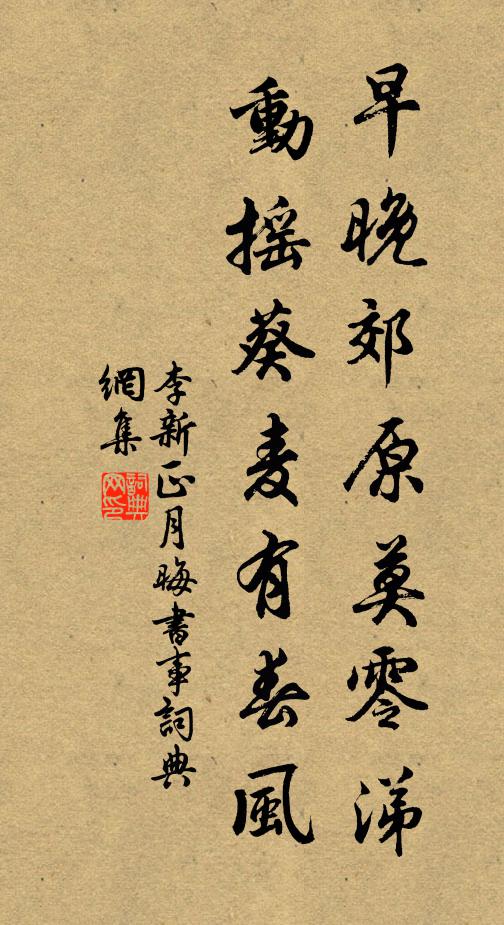 早晚郊原莫零涕
動摇葵麦有春風
李新正月晦書事詞典
網集
詞典网印